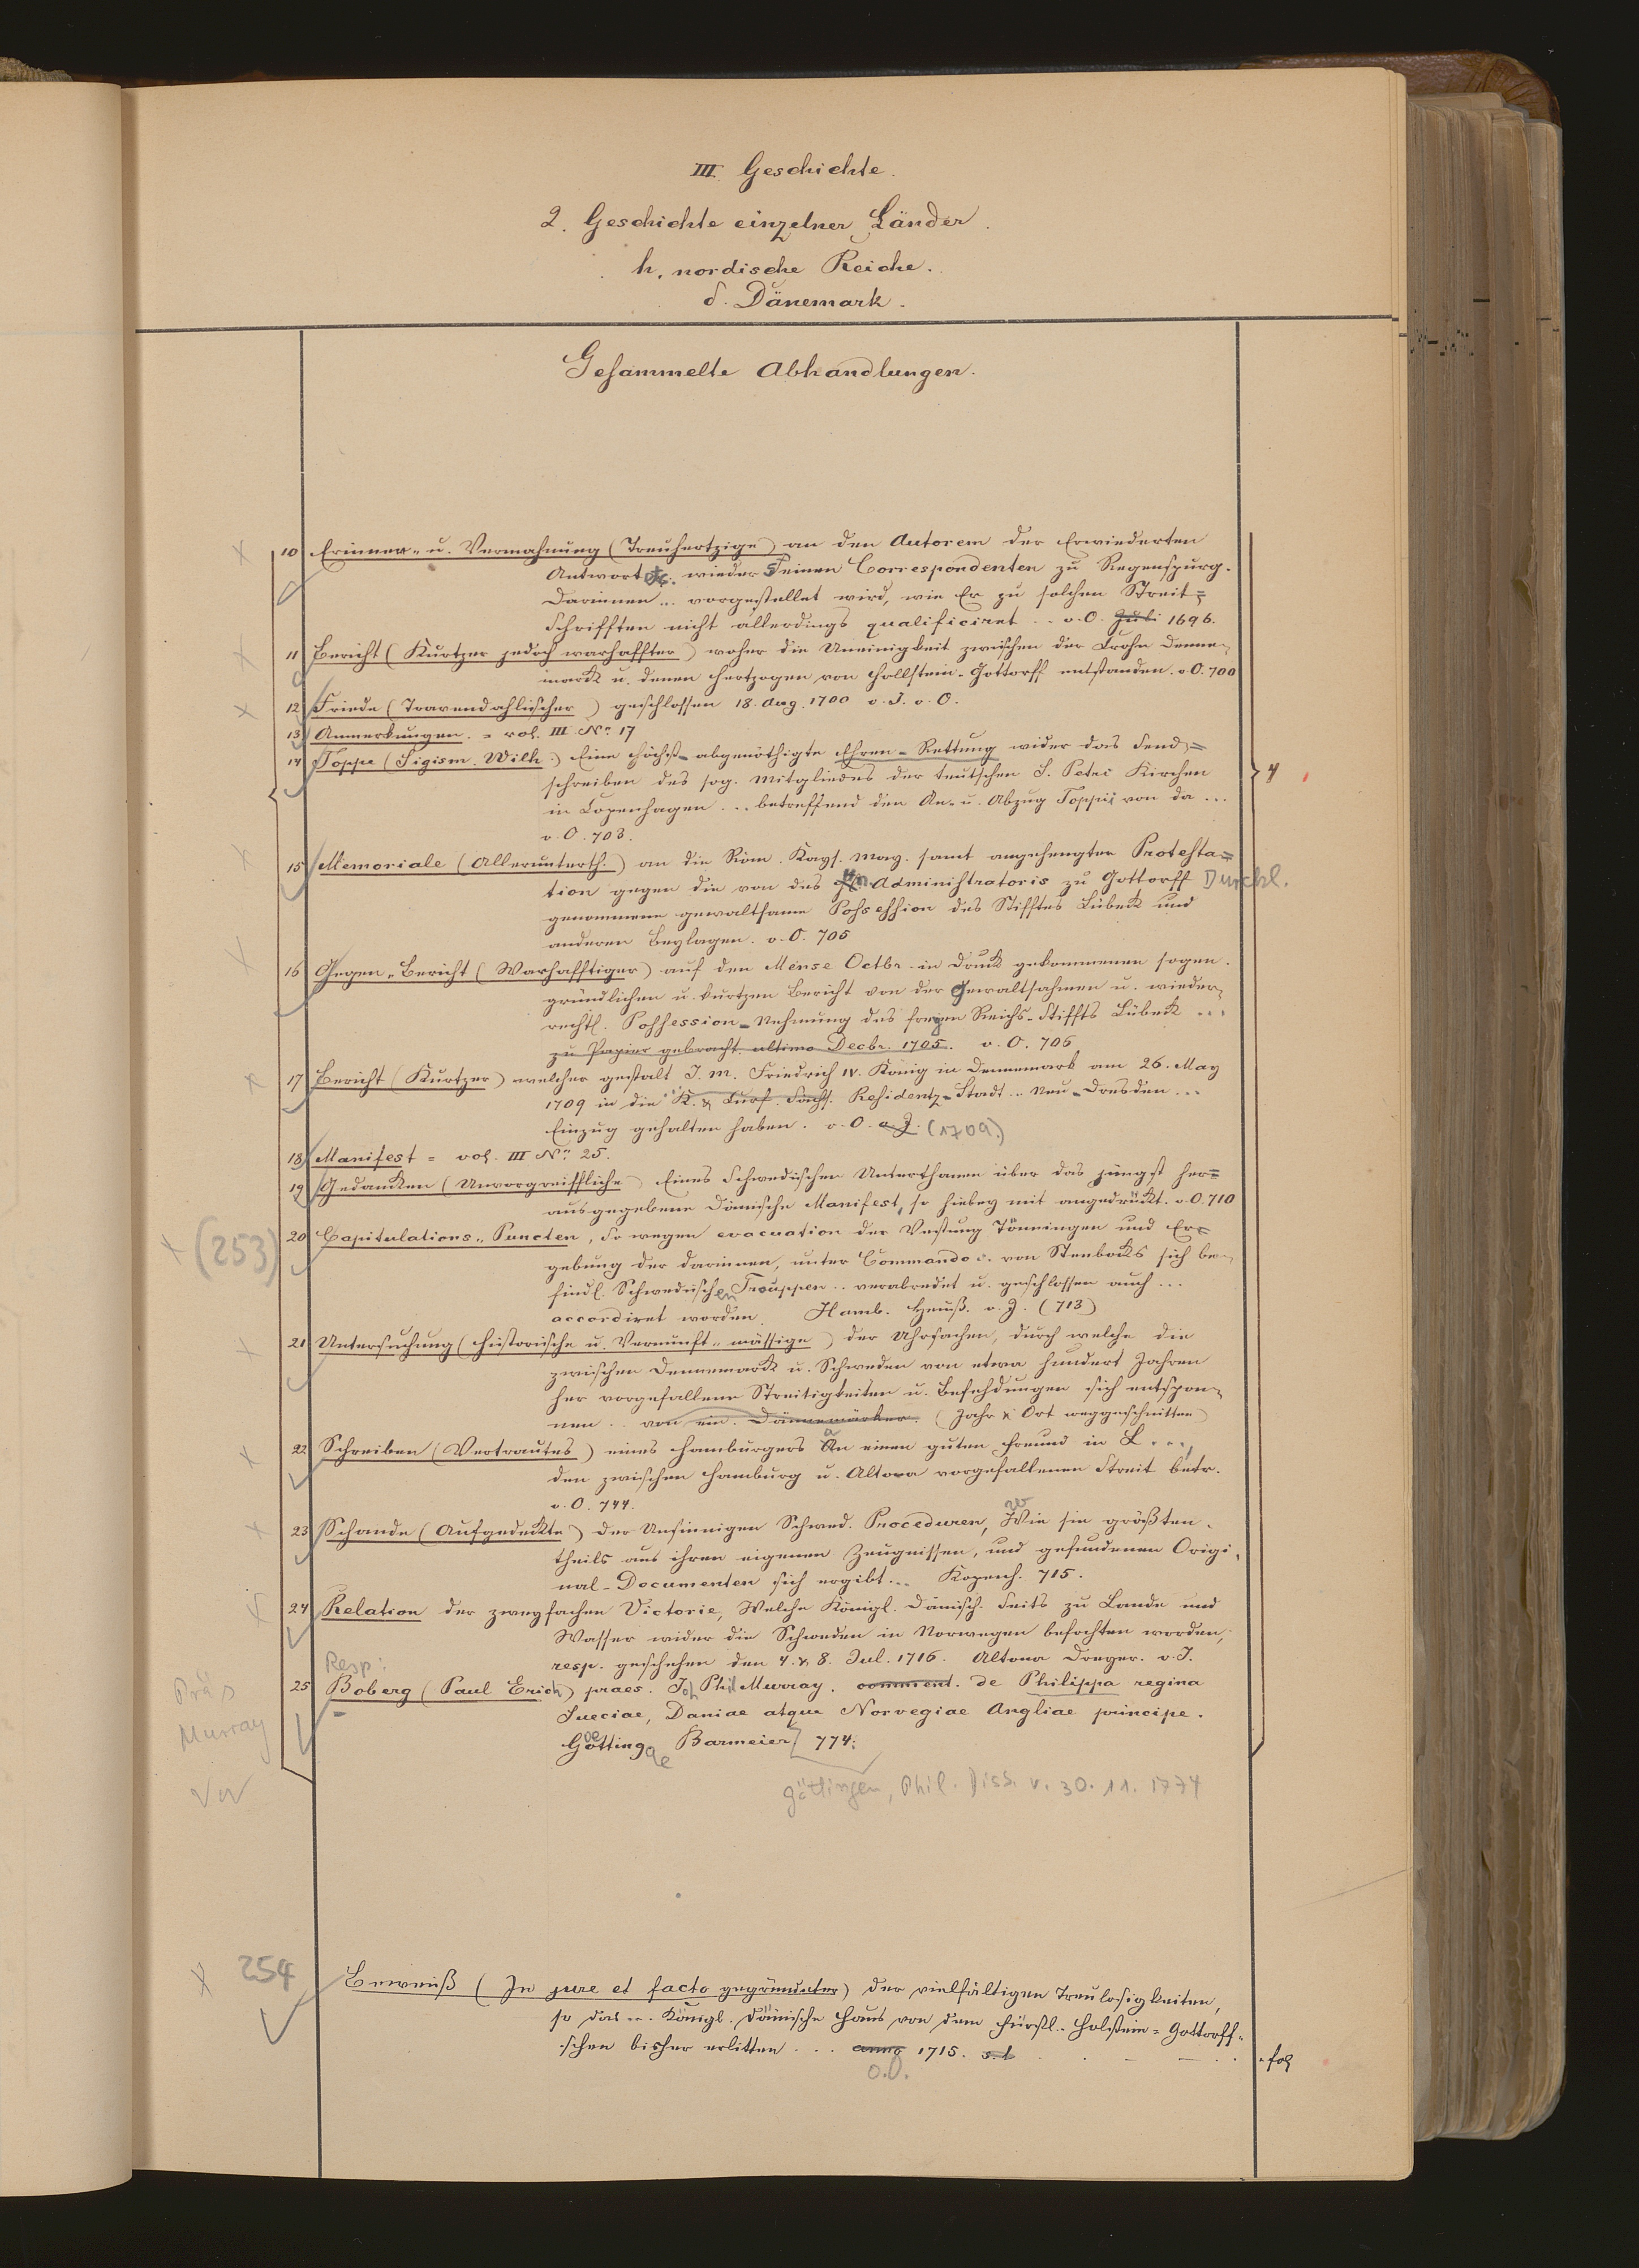 III. Geschichte.
2. Geschichte einzelner Länder.
h. nordische Reiche.
δ. Dänemark.
Gesammelte Abhandlungen.
10 Erinner- u. Vermahnung (Treuhertzige) an den Autorem der Erwiederten
Antwort etc. wieder seinen Correspondenten zu Regenspurg.
Darinnen... vorgestellet wird, wie Er zu solchen Streit=
Schrifften nicht allerdings qualificiret .. o. O. Juli 1696.
11 Bericht (Kurtzer jedoch warhaffter) woher die Uneinigkeit zwischen der Crohn Denne-
mark u. denen Hertzogen von Hollstein-Gottorff entstanden. o O. 700
12 Friede (Travendahlischer) geschlossen 18. Aug. 1700 o. J. o. O.
13 Anmerkungen. = vol. III No 17
14 Toppe (Sigism. Wilh.) Eine höchst-abgenöthigte Ehren-Rettung wider das Send=
schreiben des sog. Mitgliedes der teutschen S. Petri Kirchen
in Copenhagen ... betreffend den An- u. Abzug Toppii von da ...
o. O. 703.
15 Memoriale (Allerunterth.) an die Röm. Kays. May. samt angehengter Protesta=
tion gegen die von des Hn Administratoris zu Gottorff Durchl.
genommene gewaltsame Possession des Stifftes Lübeck und
anderen Beylagen. o. O. 705
16 Gegen-Bericht (Warhafftiger) auf den Mense Octbr. in Druck gekommenen sogen.
gründlichen u. kurtzen Bericht von der Gewaltsahmen u. wieder-
rechtl. Possession-Nehmung des freyen Reichs-Stiffts Lübeck ...
zu Papier gebracht ultimo Decbr. 1705. o. O. 706
17 Bericht (Kurtzer) welcher gestalt J. M. Friedrich IV. König in Dennemark am 26. May
1709 in die K. & Curf. Sächs. Residentz-Stadt .. Neu-Dresden ...
Einzug gehalten haben. o. O. o. J. (1709.)
18 Manifest = vol. III No 25.
19 Gedancken (Unvorgreiffliche) Eines Schwedischen Unterthanen über das jüngst her=
ausgegebene Dänische Manifest, so hiebey mit angedrückt. o. O. 710
(253)
20 Capitulations-Puncten, so wegen evacuation der Vestung Tönningen und Er=
gebung der darinnen, unter Commando .. von Stenbocks sich be-
findl. Schwedischen Trouppen .. verabredet u. geschlossen auch ...
accordiret worden. Hamb. Heuß. o. J. (713)
21 Untersuchung (historische u. Vernunft-mässige) der Uhrsachen, durch welche die
zwischen Dennemark u. Schweden von etwa hundert Jahren
her vorgefallene Streitigkeiten u. Befehdungen sich entspon-
nen .. von ein. Dännemärker. (Jahr & Ort weggeschnitten)
22 Schreiben (Vertrautes) eines Hamburgers an einen guten Freund in L....,
den zwischen Hamburg u. Altona vorgefallenen Streit betr.
o. O. 744.
23 Schande (Aufgedeckte) der Unsinnigen Schwed. Proceduren, wie sie größten-
theils aus ihren eigenen Zeugnissen, und gefundenen Origi-
nal-Documenten sich ergibt... Kopenh. 715.
24 Relation der zweyfachen Victorie, Welche Königl. Dänisch. Seits zu Lande und
Wasser wider die Schweden in Norwegen befochten worden,
resp. geschehen den 4. & 8. Jul. 1716. Altona Dreyer. o. J.
Resp:
25 Boberg (Paul Erich) praes. Joh Phil Murray. comment. de Philippa regina
Sueciae, Daniae atque Norvegiae Angliae principe.
Goettingae Barmeier 774.
Präs
Murray
göttingen, Phil. Diss. v. 30.11.1774
4
254
Beweiß (In jure et facto gegründeter) der vielfältigen Treulosigkeiten,
so das ... Königl. Dänische Haus von dem Fürstl. Holstein-Gottorff-
schen bisher erlitten ... anno 1715. s. l.
o.O.
fol